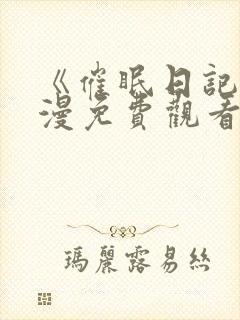 《催眠日記
漫免費觀看
瑪麗露易絲